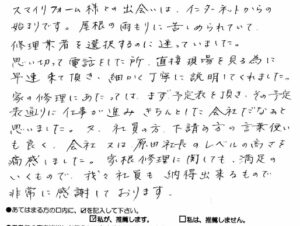 スマイリフォーム様との出会いは、インターネットからの
始まりです。屋根の雨もりに苦しめられていて、
修理業者を選択するのに迷っていました。
思い切って電話をした所、直接現場を見る為に
早速来て頂き、細かく丁寧に説明してくれました。
家の修理にあたっては、まず予定表を頂き、その予定
表通りに仕事が進み、きちんとした会社だなあと
思いました。又、社員の方、下請の方の言葉使い
も良く、会社又は原田社長のレベルの高さを
痛感しました。家根修理に関しても、満足の
いくもので、我々社員も納得出来るもので
非常に感謝しております。
●あてはまる方の口内に、☑を記入して下さい。
☑私が、推薦します。 □私は、推薦しません。